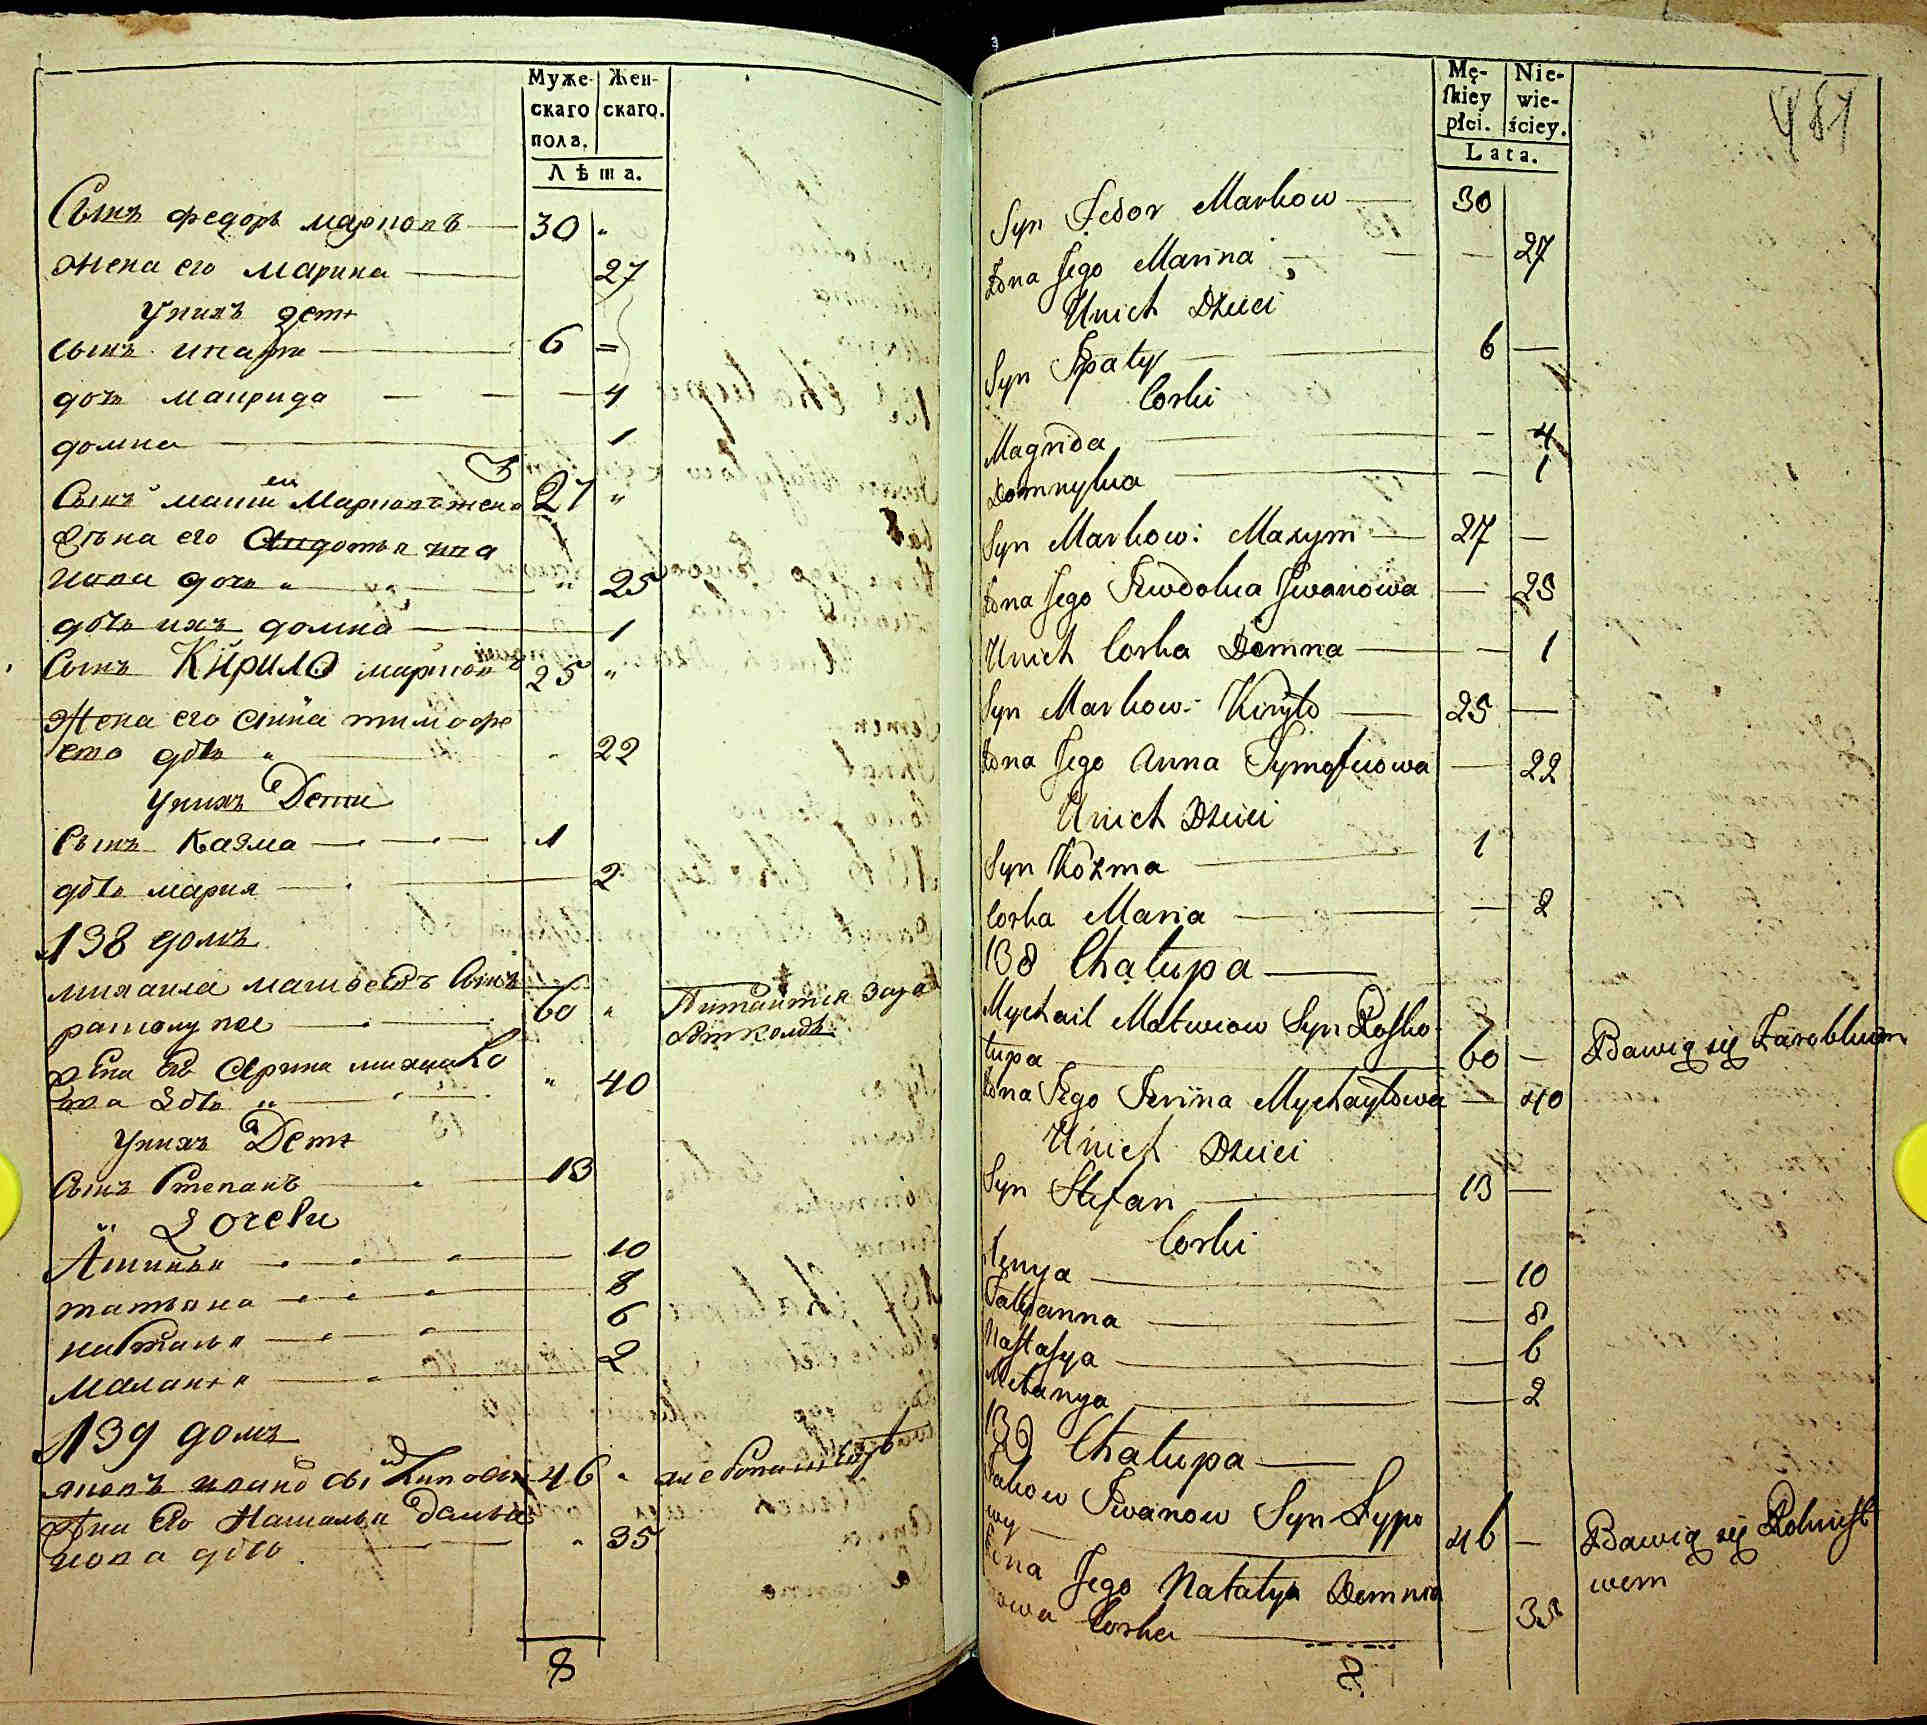 Муже- Жен-
скаго скаго.
пола.
Лѣта.
Сынъ федоръ марковъ 30 „
жена его марина 27
у нихъ дети
сынъ ипати 6 =
дочь маирида 4
домна 1
Сынъ марковъ 27 „
его
нова дочь „ „ 25
дочь ихъ домна 1
Сынъ Кирило марковъ 25 „
Жена его анна тимофе
ева дочь „ 22
у нихъ Дети
Сынъ Казма 1
дочь мария 2
138 домъ
михаила матвеевъ Сынъ
60 „ Питаится зара
жена его Арина михаило
ва дочь „ „ 40
у нихъ Дети
Сынъ Степанъ 13
„ Дочери
10
татьяна 8
настасья 6
маланья 2
139 домъ
46 „ хлебопашество
жена его Наталья Дамья
нова дочь „ 35
8
Mę- Nie-
ſkiey wie-
płci. ściey.
Lata.
481
Syn Fedor Markow 30
Żona Jego Marina 27
Unich Dzieci
Syn Ipaty 6 —
Corki
Magrida 4
Domnylua 1
Syn Markow: Maxym 27 —
Żona Jego Iwdokia Iwanowa 25
Unich Corka Domna 1
Syn Markow: Kiryło 25 —
Żona Jego Anna Tymofiiowa 22
Unich Dzieci
Syn Kozma 1
Corka Maria 2
138 Chałupa
Mychail Matwiow Syn Rosko
łupa 60 — Bawią się Zarobkiem
Żona Jego Iriina Mychayłowa 40
Unich Dzieci
Syn Stefan 13 —
Corki
10
Tatyanna 8
Nastasya 6
Melanya 2
139 Chałupa
Jakow Iwanow Syn Lypo
wy 46 — Bawią się Rolnict
wem
Żona Jego Natalya Demnia
nowa Corka 35
8.